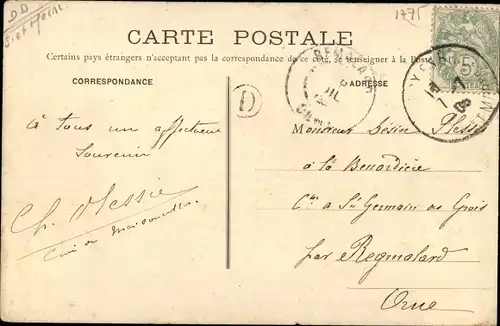 DD
Set Marne
1775
CARTE POSTALE
Certains pays étrangers n'acceptant pas la correspondance de ce côté, se renseigner à la Poste
CORRESPONDANCE
ADRESSE
D
à tous un affectueux
Souvenir
Ch. Plessie
Monsieur Désiré Plessie
à la Benardière
Cne de St Germain des Grois
par Regmalard
Orne